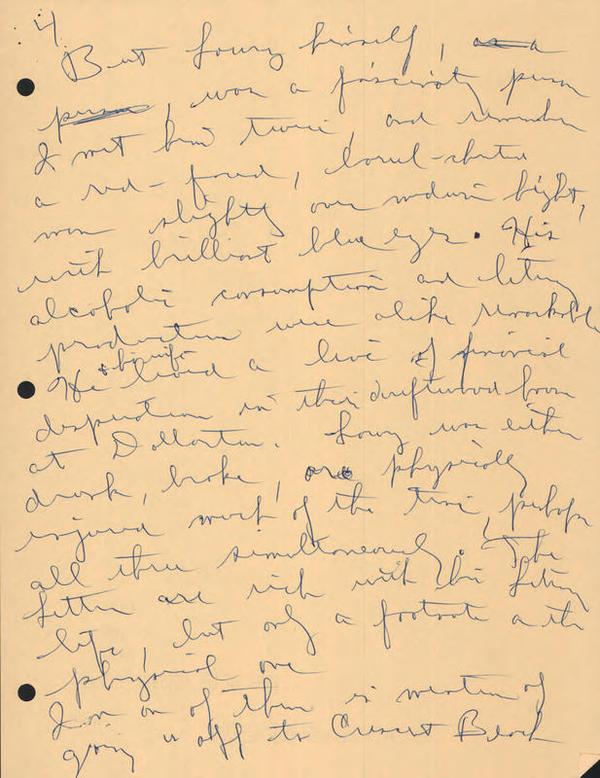 4
But Lowry himself, 
person, was a fascinating person
I met him twice, and remember
a red-faced, barrel-chested
man slightly over medium hight,
with brilliant blue eyes. His
alcoholic consumption and literary
production were alike remarkable
He & his wife lived a live of financial
desperation in their driftwood home
at Dollarton. Lowry was either
drunk, broke, or physically
injured much of the time, perhaps
all three simultaneously. The
letters are rich with his literary
life, but only a footnote on the
physical one
In one of them is mention of
going off to Crescent Beach